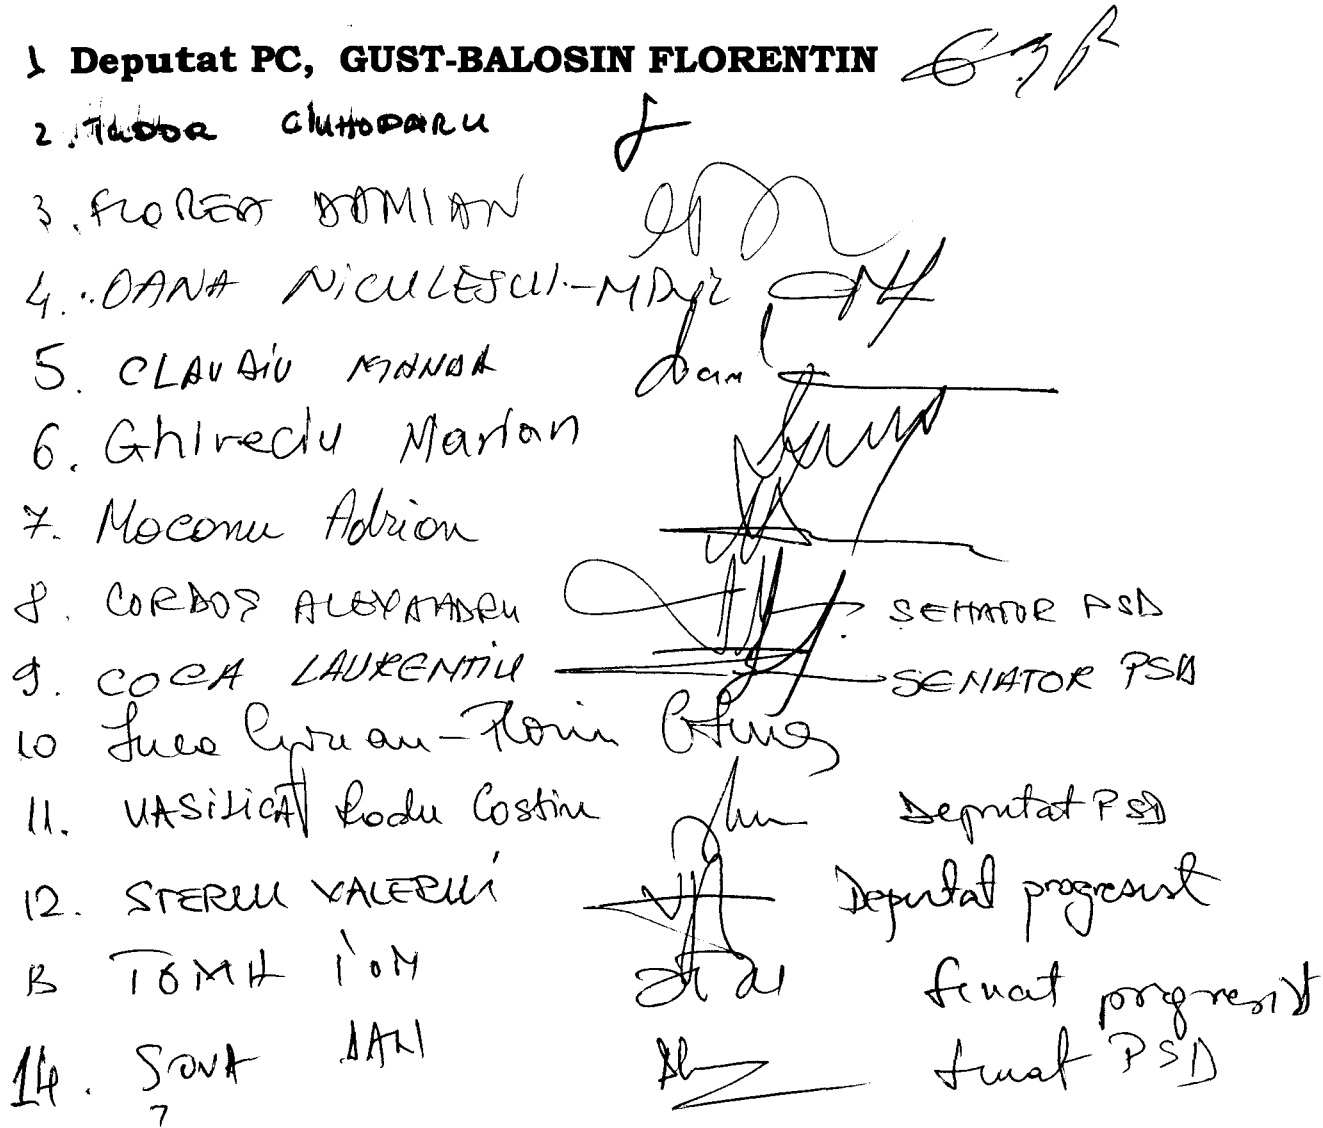 1 Deputat PC, GUST-BALOSIN FLORENTIN
2. TUDOR CIUHODARU
3. FLOREA DAMIAN
4. OANA NICULESCU-MIZIL
5. CLAUDIU MANDA
6. Ghireciu Marian
7. Mocanu Adrian
8. CORDOȘ ALEXANDRU SENATOR PSD
9. COCA LAURENTIU SENATOR PSD
10 Luca Ciprian-Florin
11. VASILICĂ Radu Costin Deputat PSD
12. STERIU VALERIU Deputat progresist
13 TOMA ION Senat progresist
14. ȘOVA DAN Senat PSD